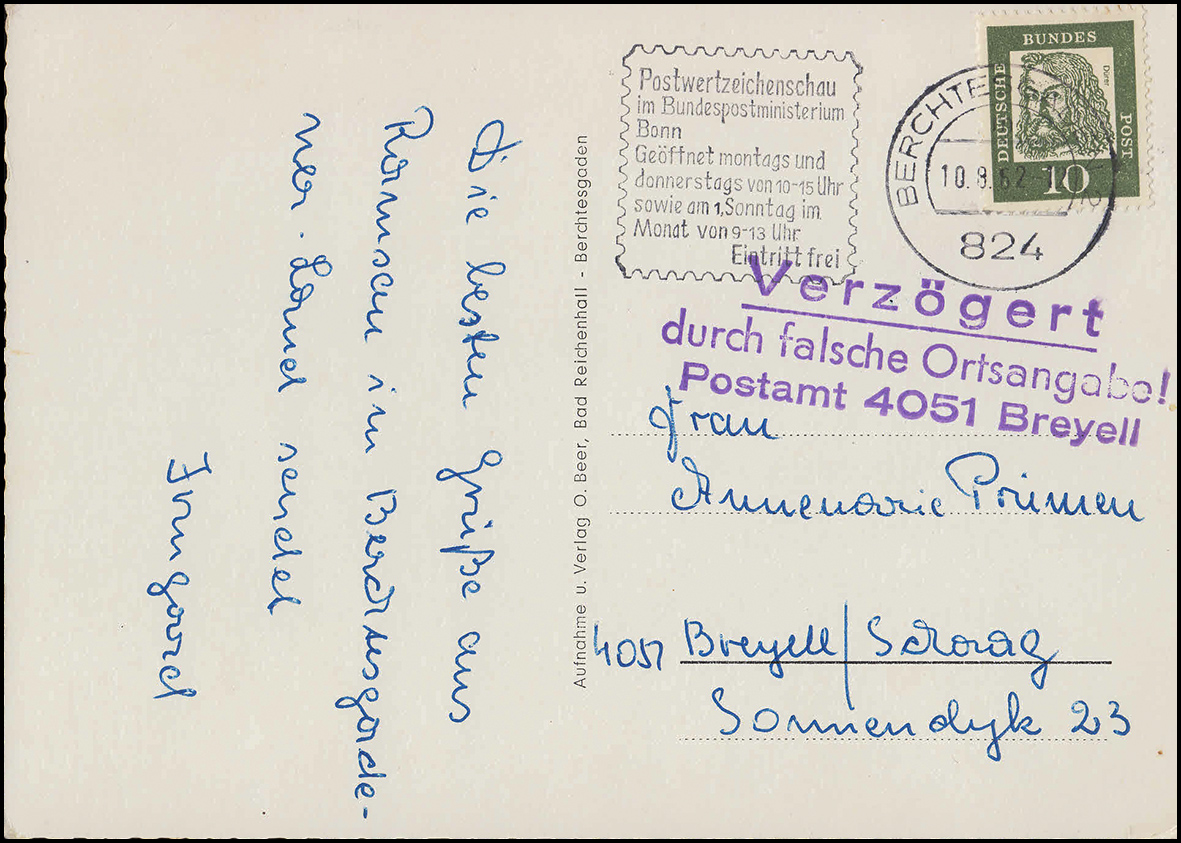 Die besten Grüße aus
Ramsau im Berchtesgade-
ner-Land sendet
Irmgard
Aufnahme u. Verlag O. Beer, Bad Reichenhall - Berchtesgaden
Postwertzeichenschau
im Bundespostministerium
Bonn
Geöffnet montags und
donnerstags von 10-15 Uhr
sowie am 1. Sonntag im
Monat von 9-13 Uhr
Eintritt frei
BERCHTE
10.8.62
824
DEUTSCHE
BUNDES
POST
Dürer
10
Verzögert
durch falsche Ortsangabe!
Postamt 4051 Breyell
Frau
Annemarie Primen
4051 Breyell/Schaag
Sonnendyk 23